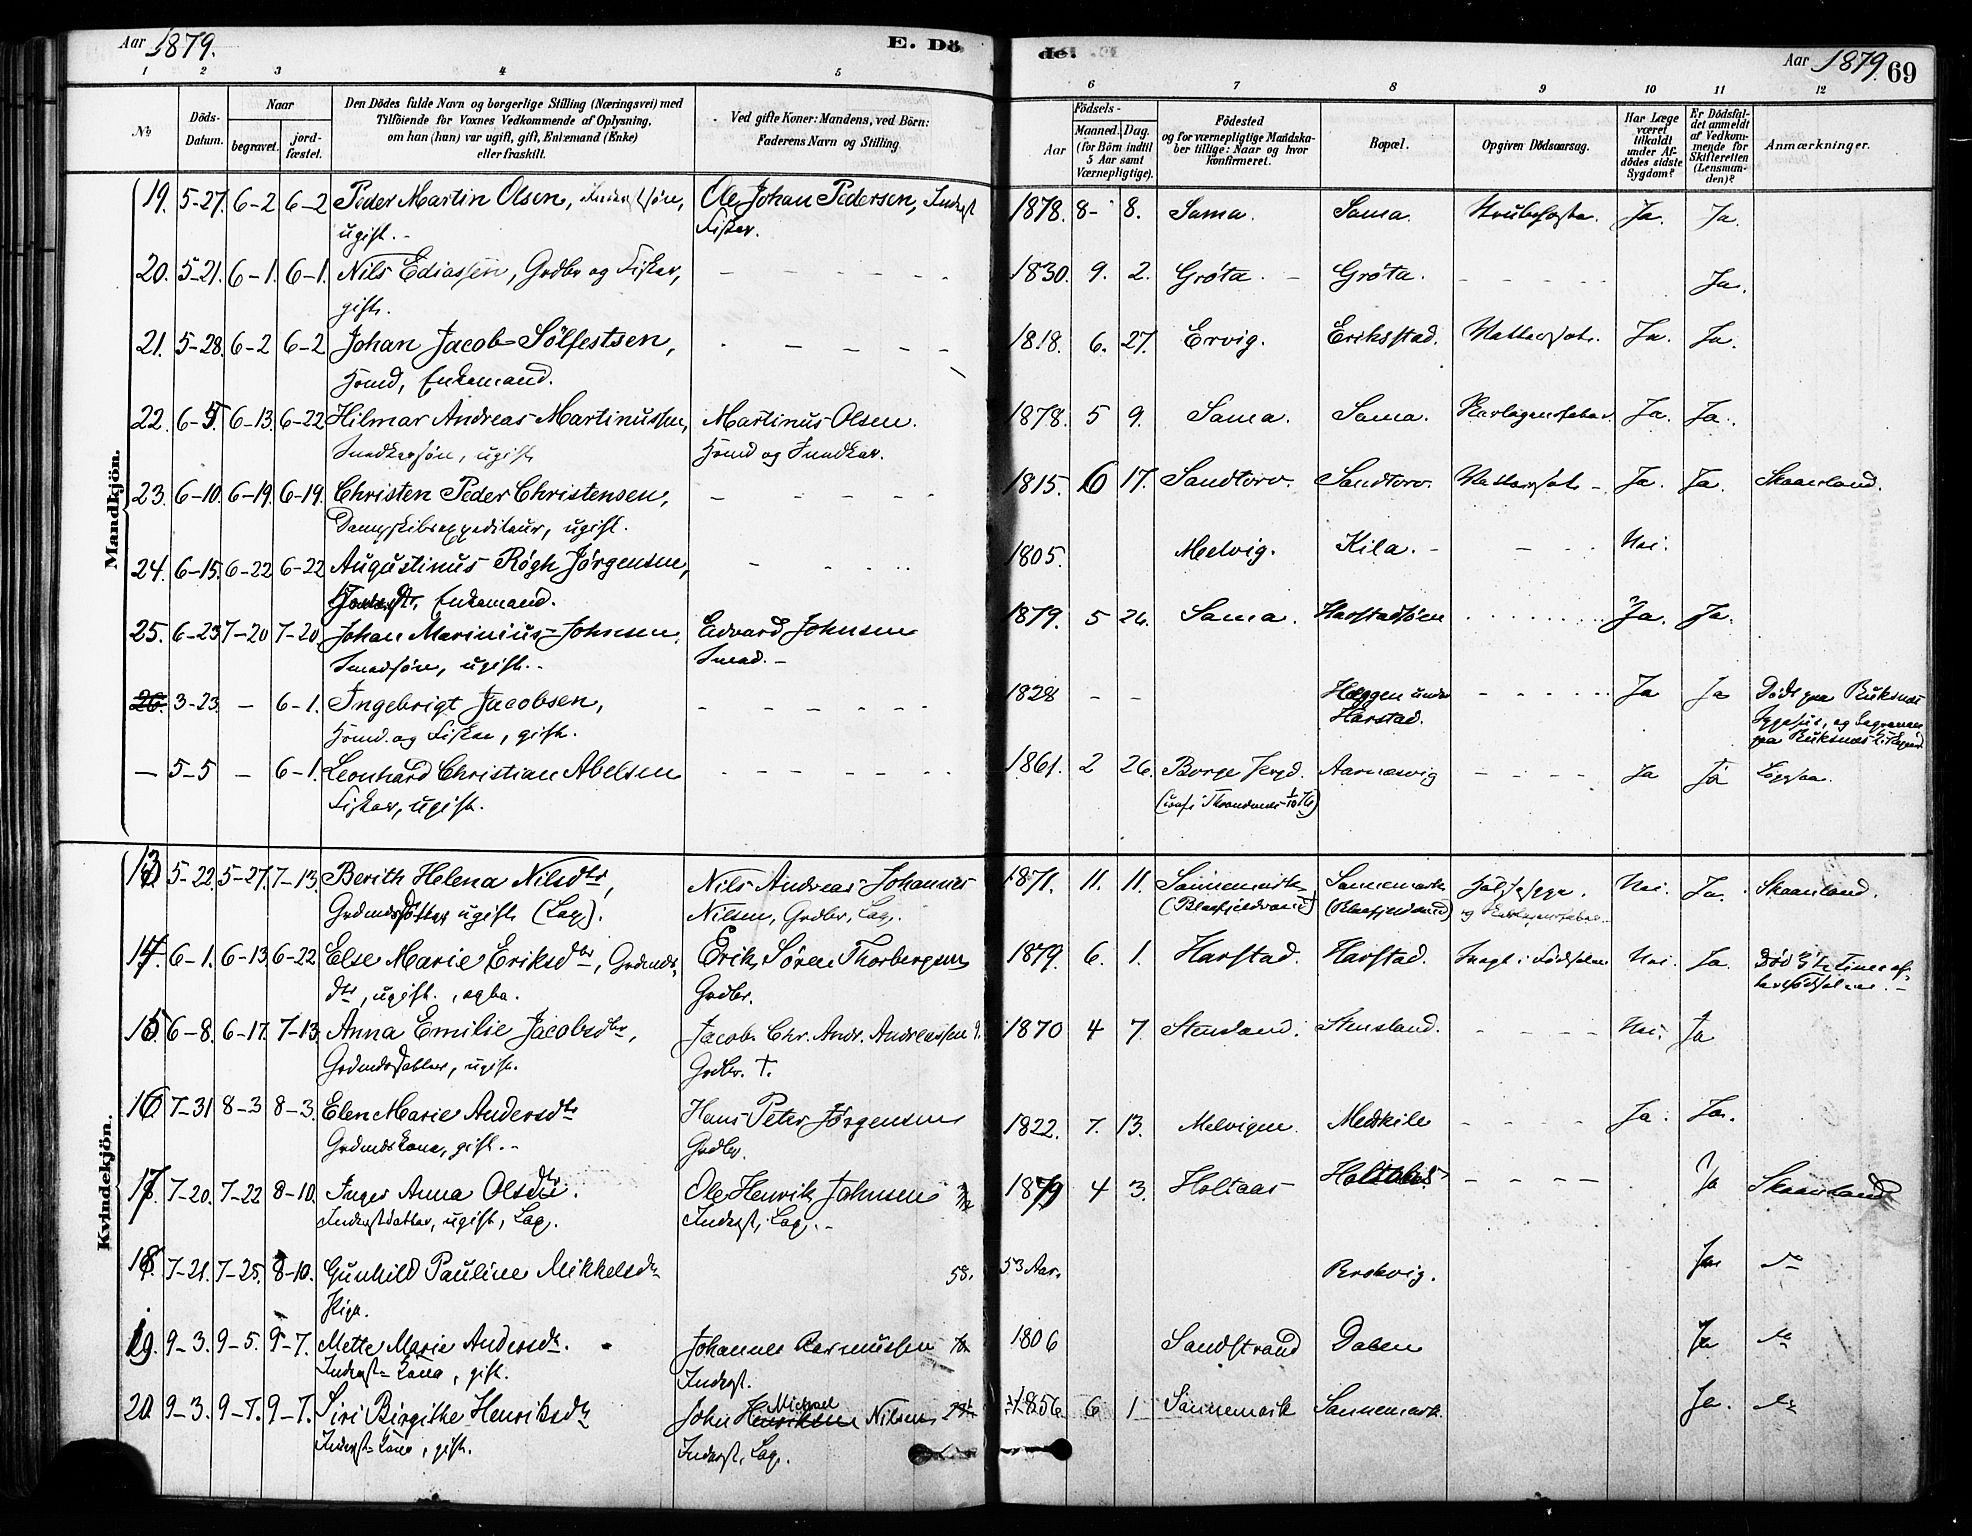 Aar 1879. E. Dö de. Aar 1879. 69
1 2 3 4 5 6 7 8 9 10 11 12
No Döds-Datum. Naar begravet. jordfæstet. Den Dödes fulde Navn og borgerlige Stilling (Næringsvei) med Tilföiende for Voxnes Vedkommende af Oplysning, om han (hun) var ugift, gift, Enkemand (Enke) eller fraskilt. Ved gifte Koner: Mandens, ved Börn: Faderens Navn og Stilling. Födsels- Aar Maaned. Dag. (for Börn indtil 5 Aar samt Værnepligtige). Födested og for værnepligtige Mandskaber tillige: Naar og hvor konfirmeret. Bopæl. Opgiven Dödsaarsag. Har Læge været tilkaldt under Afdödes sidste Sygdom? Er Dödsfaldet anmeldt af Vedkommende for Skifteretten (Lensmanden)? Anmærkninger.
Mandkjön.
19. 5-27. 6-2 6-2 Peder Martin Olsen, Inderstsøn, Ole Johan Pedersen, Inderst 1878. 8- 8. Sama. Sama. Strubehoste. Ja. Ja.
ugift. Fisker.
20. 5-21. 6-1. 6-1. Nils Ediassen, Grdbr og Fisker, 1830. 9. 2. Grøta. Grøta. Ja.
gift.
21. 5-28. 6-2 6-2 Johan Jacob Sölfestsen, 1818. 6. 27. Ervig. Eriksstad. Ja. Ja.
Hsmd, Enkemand.
22. 6-5. 6-13. 6-22 Hilmar Andreas Martinussen, Martinus Olsen. 1878. 5 9. Sama. Sama. Skarlagensfeber Ja. Ja.
Snedkersøn, ugift Hsmd og Snedker.
23. 6-10. 6-19. 6-19. Christen Peder Christensen, 1815. 6 17. Sandtorv. Sandtorv. Ja. Ja. Skaanland.
Dampskibsexpediteur, ugift.
24. 6-15. 6-22 6-22 Augustinus Røgh Jørgensen, 1805. Melvig. Kila. Nei.
Enkemand.
25. 6-23 7-20 7-20 Johan Marinius Johnsen, Edvard Johnsen 1879. 5 26. Sama. Harstadsjøen Ja. Ja.
Smedsøn, ugift. Smed.
26. 3-23. - 6-1. Ingebrigt Jacobsen, 1828 - - Hæggen under Ja Ja Døde paa Buksnæs
Hsmd. og Fisker, gift. Harstad. Sygehus, og begraven paa Buksnæs Kirkegaard
- 5-5 - 6-1. Leonhard Christian Abelsen 1861. 2 26. Borge Prgd. Aarnæsvig Ja Ja
Fisker, ugift. (conf. i Trondenæs 1/10 76)
Kvindekjön.
13 5-22. 5-27. 7-13. Berith Helena Nilsdtr, Nils Andreas Johannes 1871. 11. 11. Sannemark Sannemark Nei. Ja. Skaanland.
Grdmdsdatter, ugift (Lap). Nilsen, Grdbr, Lap. (Blaafjeldvand) (Blaafjeldvand) og Skarlagensfeber
14. 6-1. 6-13 6-22 Else Marie Eriksdtr, Grdmds- Erik Søren Thorbergsen 1879. 6. 1. Harstad. Harstad. Svagt i Fødselen Nei. Ja. Død 3½ Timer ef-
dtr, ugift., ægte. Grdbr. ter Fødselen.
15. 6-8. 6-17. 7-13. Anna Emilie Jacobsdtr, Jacob Chr. Andr. Andreassen 1870 4 7. Stensland. Stensland. Nei. Ja
Grdmdsdatter, ugift. Grdbr. †.
16 7-31 8-3 8-3. Elen Marie Andersdtr Hans Peter Jørgensen 1822. 7. 13. Melvigen. Medkile Ja. Ja.
Grdmdskone, gift. Grdbr.
17. 7-20. 7-22 8-10. Inger Anna Olsdtr. Ole Henrik Johnsen 1879 4 3. Holtaas Holtaas Ja Skaanland
Inderstdatter, ugift, Lap. Inderst, Lap.
18. 7-21. 7-25. 8-10. Gunhild Pauline Mikkelsdtr 58. 53 Aar. Breivig. Ja do
Pige.
19. 9-3. 9-5. 9-7. Mette Marie Andersdtr. Johannes Rasmussen 1806 Sandstrand Dalen Ja do
Inderst-Kone, gift. Inderst.
20. 9-3. 9-7. 9-7. Siri Birgithe Henriksdtr John Michael Nilsen 1856 6 1 Sannemark Sannemark Ja. do
Inderst-Kone, gift. Inderst, Lap.